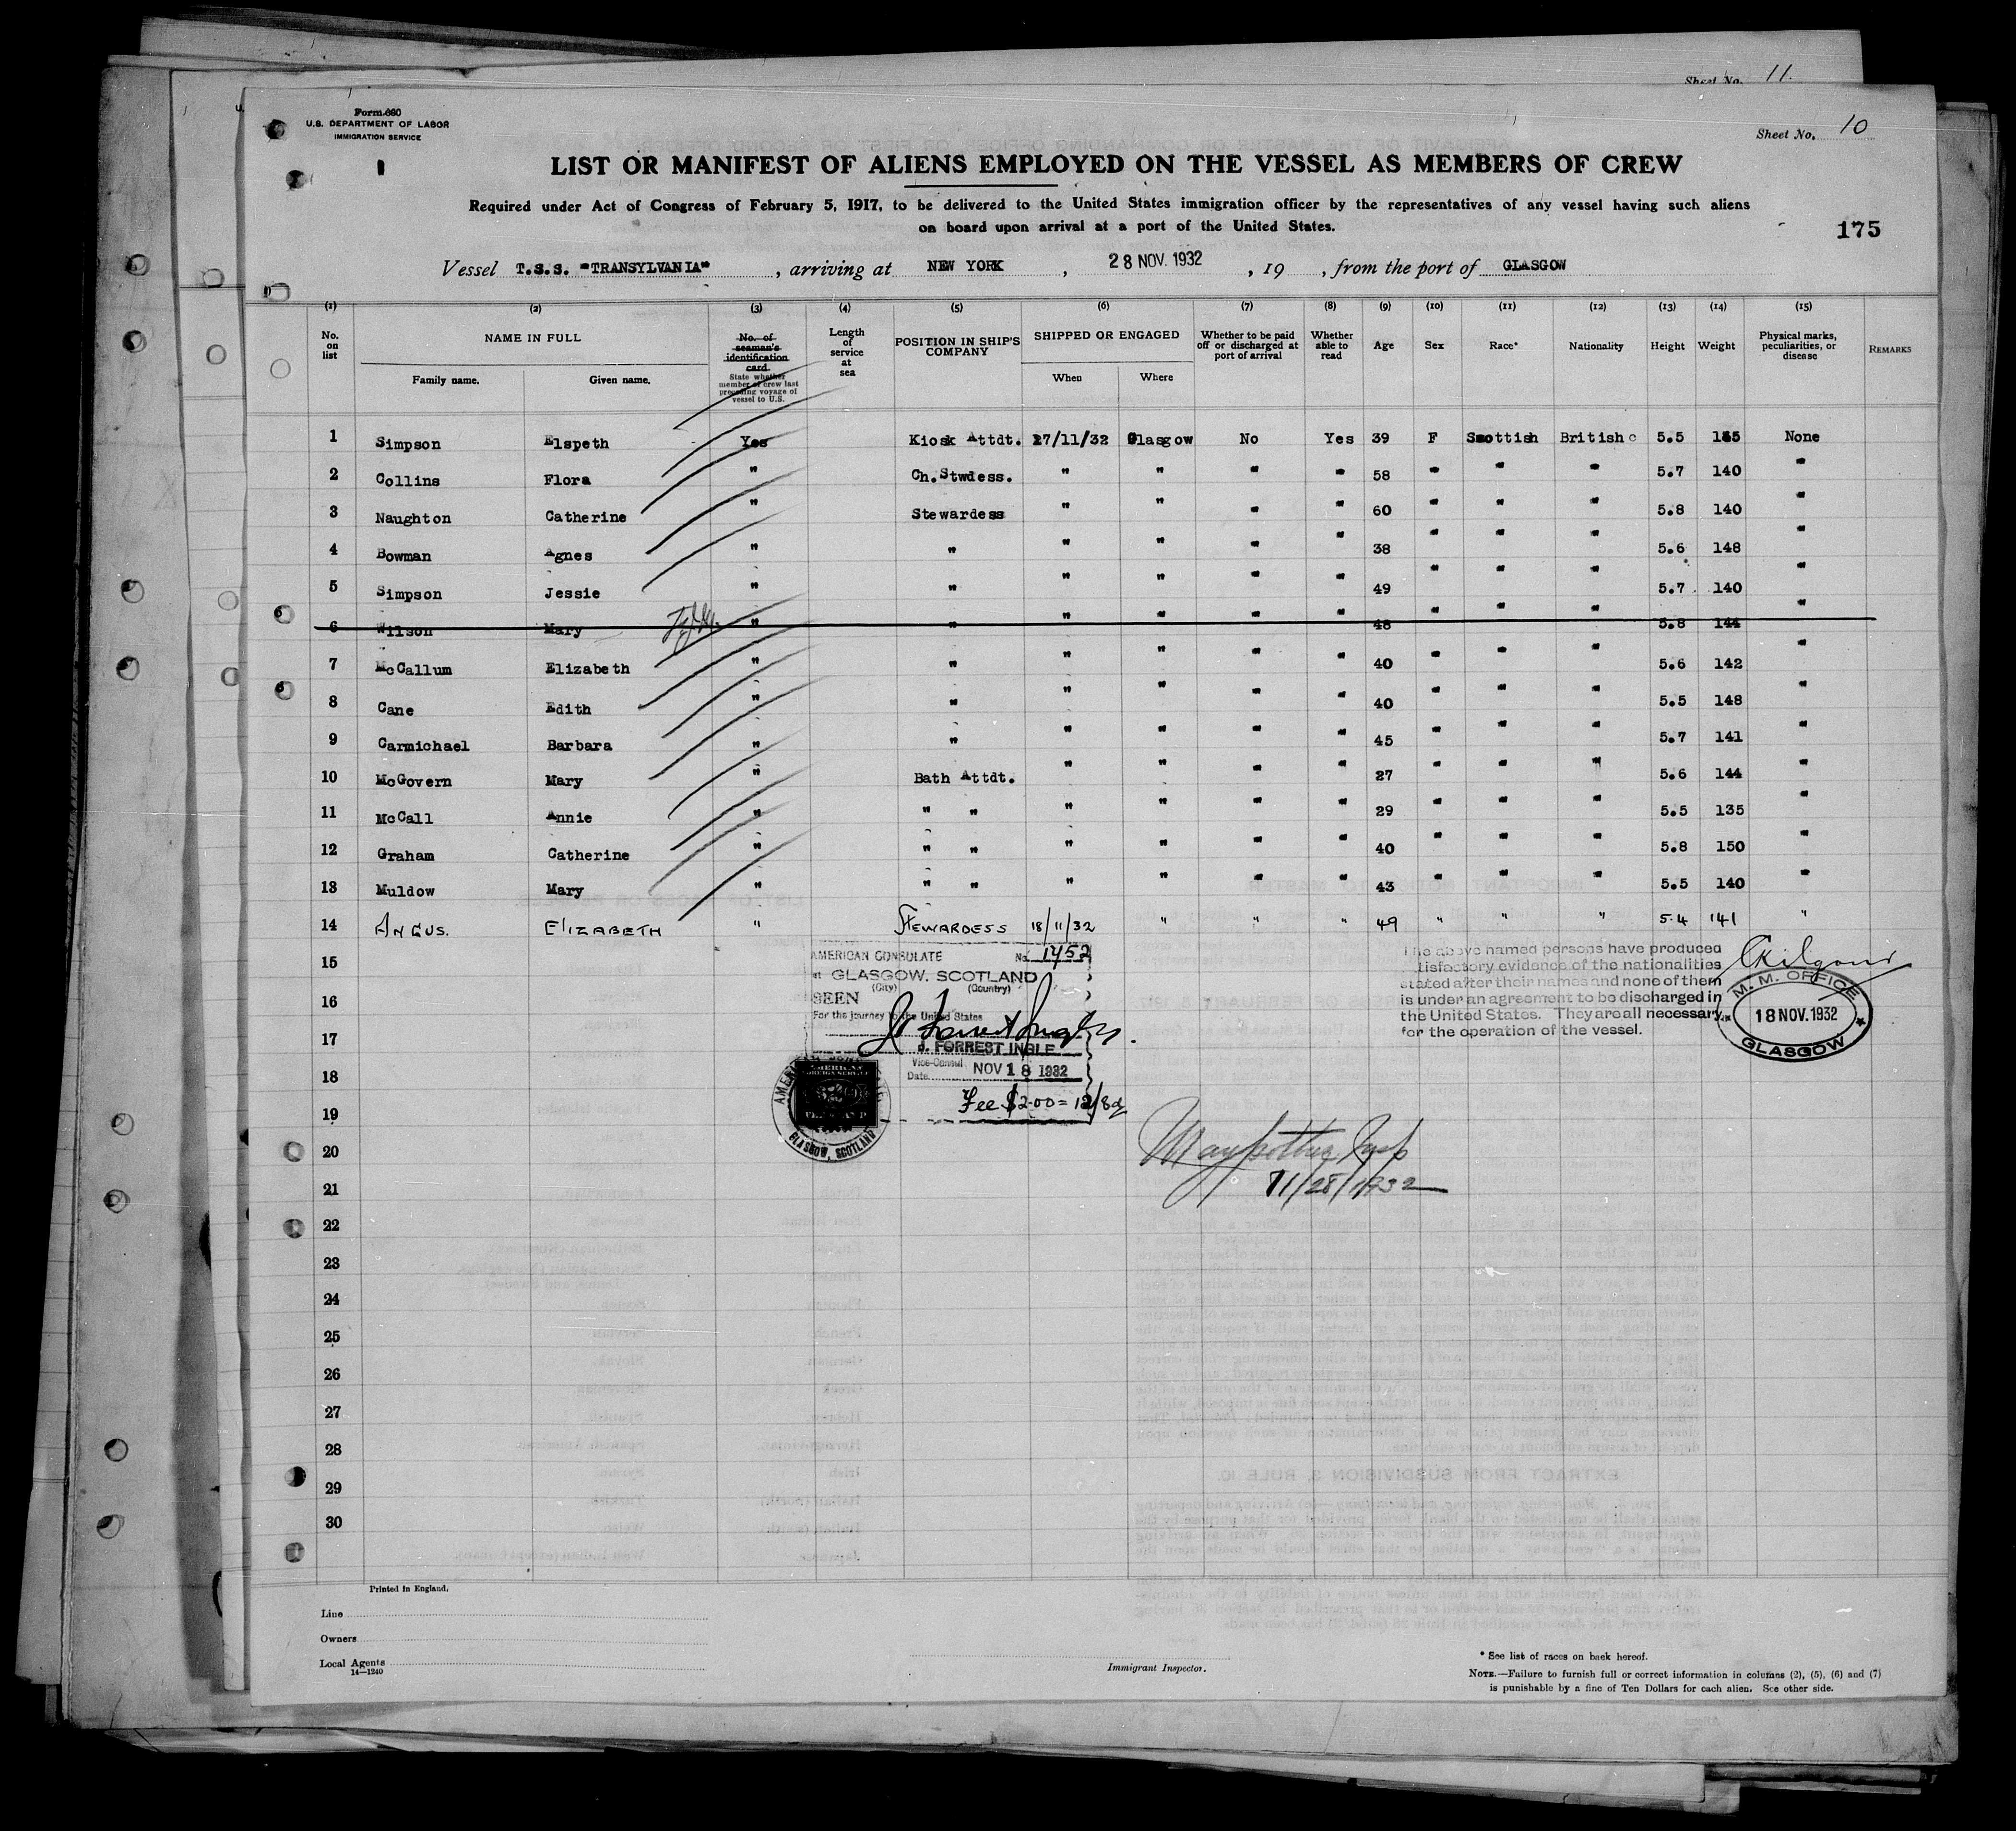 Sheet No. 11.
Form 680
U.S. DEPARTMENT OF LABOR
IMMIGRATION SERVICE
Sheet No. 10
LIST OR MANIFEST OF ALIENS EMPLOYED ON THE VESSEL AS MEMBERS OF CREW
Required under Act of Congress of February 5, 1917, to be delivered to the United States immigration officer by the representatives of any vessel having such aliens
on board upon arrival at a port of the United States.
175
Vessel T.S.S. "TRANSYLVANIA" , arriving at NEW YORK , 28 NOV. 1932 , 19 , from the port of GLASGOW
(1) (2) (3) (4) (5) (6) (7) (8) (9) (10) (11) (12) (13) (14) (15)
No. on list NAME IN FULL Family name. Given name. No. of seaman's identification card. State whether member of crew last preceding voyage of vessel to U.S. Length of service at sea POSITION IN SHIP'S COMPANY SHIPPED OR ENGAGED When Where Whether to be paid off or discharged at port of arrival Whether able to read Age Sex Race* Nationality Height Weight Physical marks, peculiarities, or disease REMARKS
1 Simpson Elspeth Yes Kiosk Attdt. 17/11/32 Glasgow No Yes 39 F Scottish British 5.5 135 None
2 Collins Flora " Ch. Stwdess. " " " " 58 " " " 5.7 140 "
3 Naughton Catherine " Stewardess " " " " 60 " " " 5.8 140 "
4 Bowman Agnes " " " " " " 38 " " " 5.6 148 "
5 Simpson Jessie " " " " " " 49 " " " 5.7 140 "
6 Wilson Mary " " " " " " 48 " " " 5.8 144 "
7 McCallum Elizabeth " " " " " " 40 " " " 5.6 142 "
8 Cane Edith " " " " " " 40 " " " 5.5 148 "
9 Carmichael Barbara " " " " " " 45 " " " 5.7 141 "
10 McGovern Mary " Bath Attdt. " " " " 27 " " " 5.6 144 "
11 McCall Annie " " " " " " " 29 " " " 5.5 135 "
12 Graham Catherine " " " " " " " 40 " " " 5.8 150 "
13 Muldow Mary " " " " " " " 43 " " " 5.5 140 "
14 ANGUS. ELIZABETH " STEWARDESS 18/11/32 " " " 49 " " " 5.4 141 "
15
16
17
18
19
20
21
22
23
24
25
26
27
28
29
30
AMERICAN CONSULATE No. 1452
at GLASGOW, SCOTLAND
(City) (Country)
SEEN
For the journey to the United States
J. Forrest Ingle.
J. FORREST INGLE
Vice-Consul
Date NOV 18 1932
Fee $2.00 = 12/8d
GLASGOW, SCOTLAND
The above named persons have produced
satisfactory evidence of the nationalities
stated after their names and none of them
is under an agreement to be discharged in
the United States. They are all necessary
for the operation of the vessel.
M. M. OFFICE
18 NOV. 1932
GLASGOW
11/28/1932
Printed in England.
Line
Owners
Local Agents
14—1240
Immigrant Inspector.
* See list of races on back hereof.
NOTE.—Failure to furnish full or correct information in columns (2), (5), (6) and (7)
is punishable by a fine of Ten Dollars for each alien. See other side.